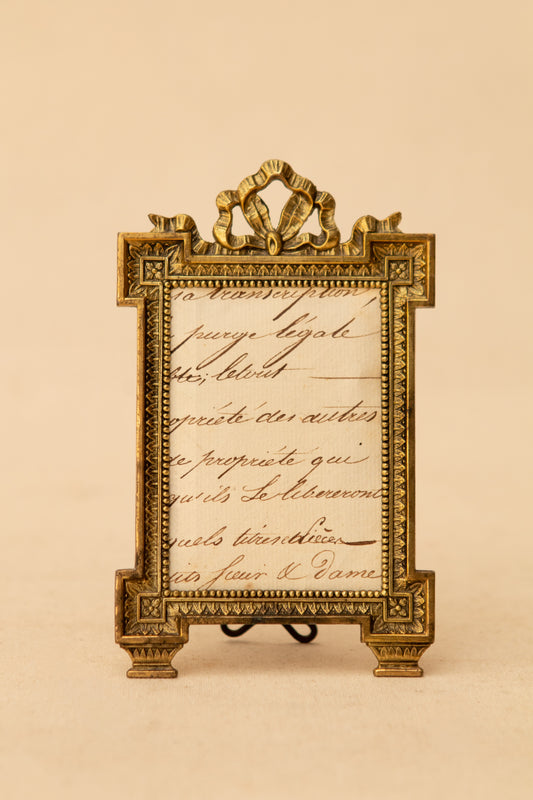 sa transcription,
purge légale
le tout
opriété des autres
de propriété qui
qu'ils se libereront
quels titres
Sieur & Dame